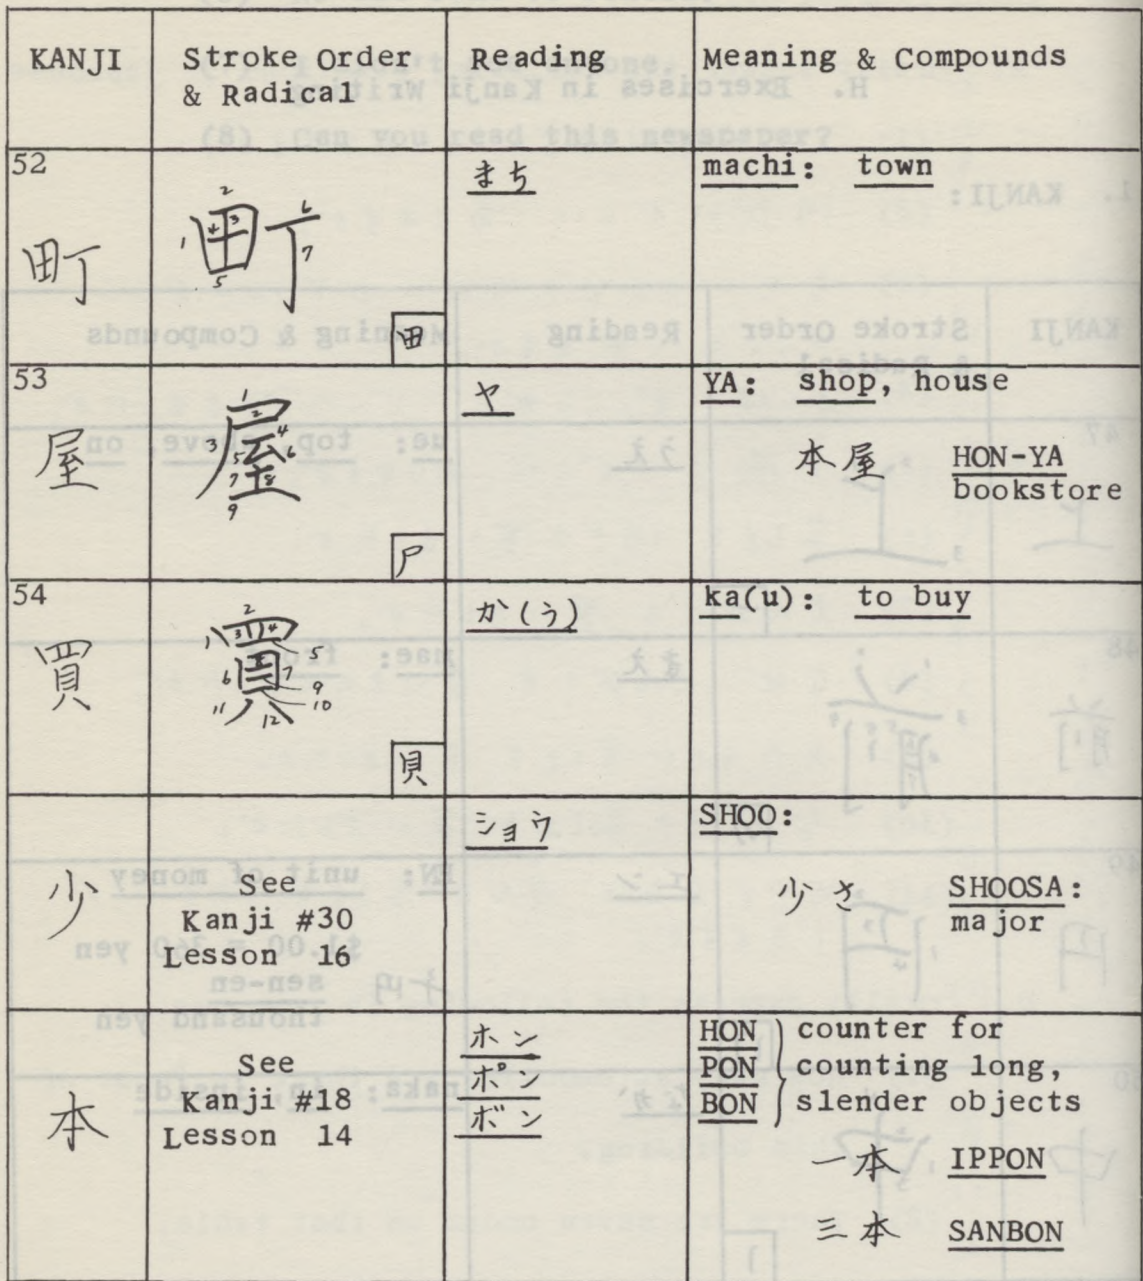 KANJI
Stroke Order
& Radical
Reading
Meaning & Compounds
52
町
町
1 2 3 4 5 6 7
田
まち
machi: town
53
屋
屋
1 2 3 4 5 6 7 8 9
尸
ヤ
YA: shop, house
本屋 HON-YA
bookstore
54
買
買
1 2 3 4 5 6 7 9 10 11 12
貝
か(う)
ka(u): to buy
少
See
Kanji #30
Lesson 16
ショウ
SHOO:
少さ SHOOSA:
major
本
See
Kanji #18
Lesson 14
ホン
ポン
ボン
HON
PON
BON
counter for
counting long,
slender objects
一本 IPPON
三本 SANBON